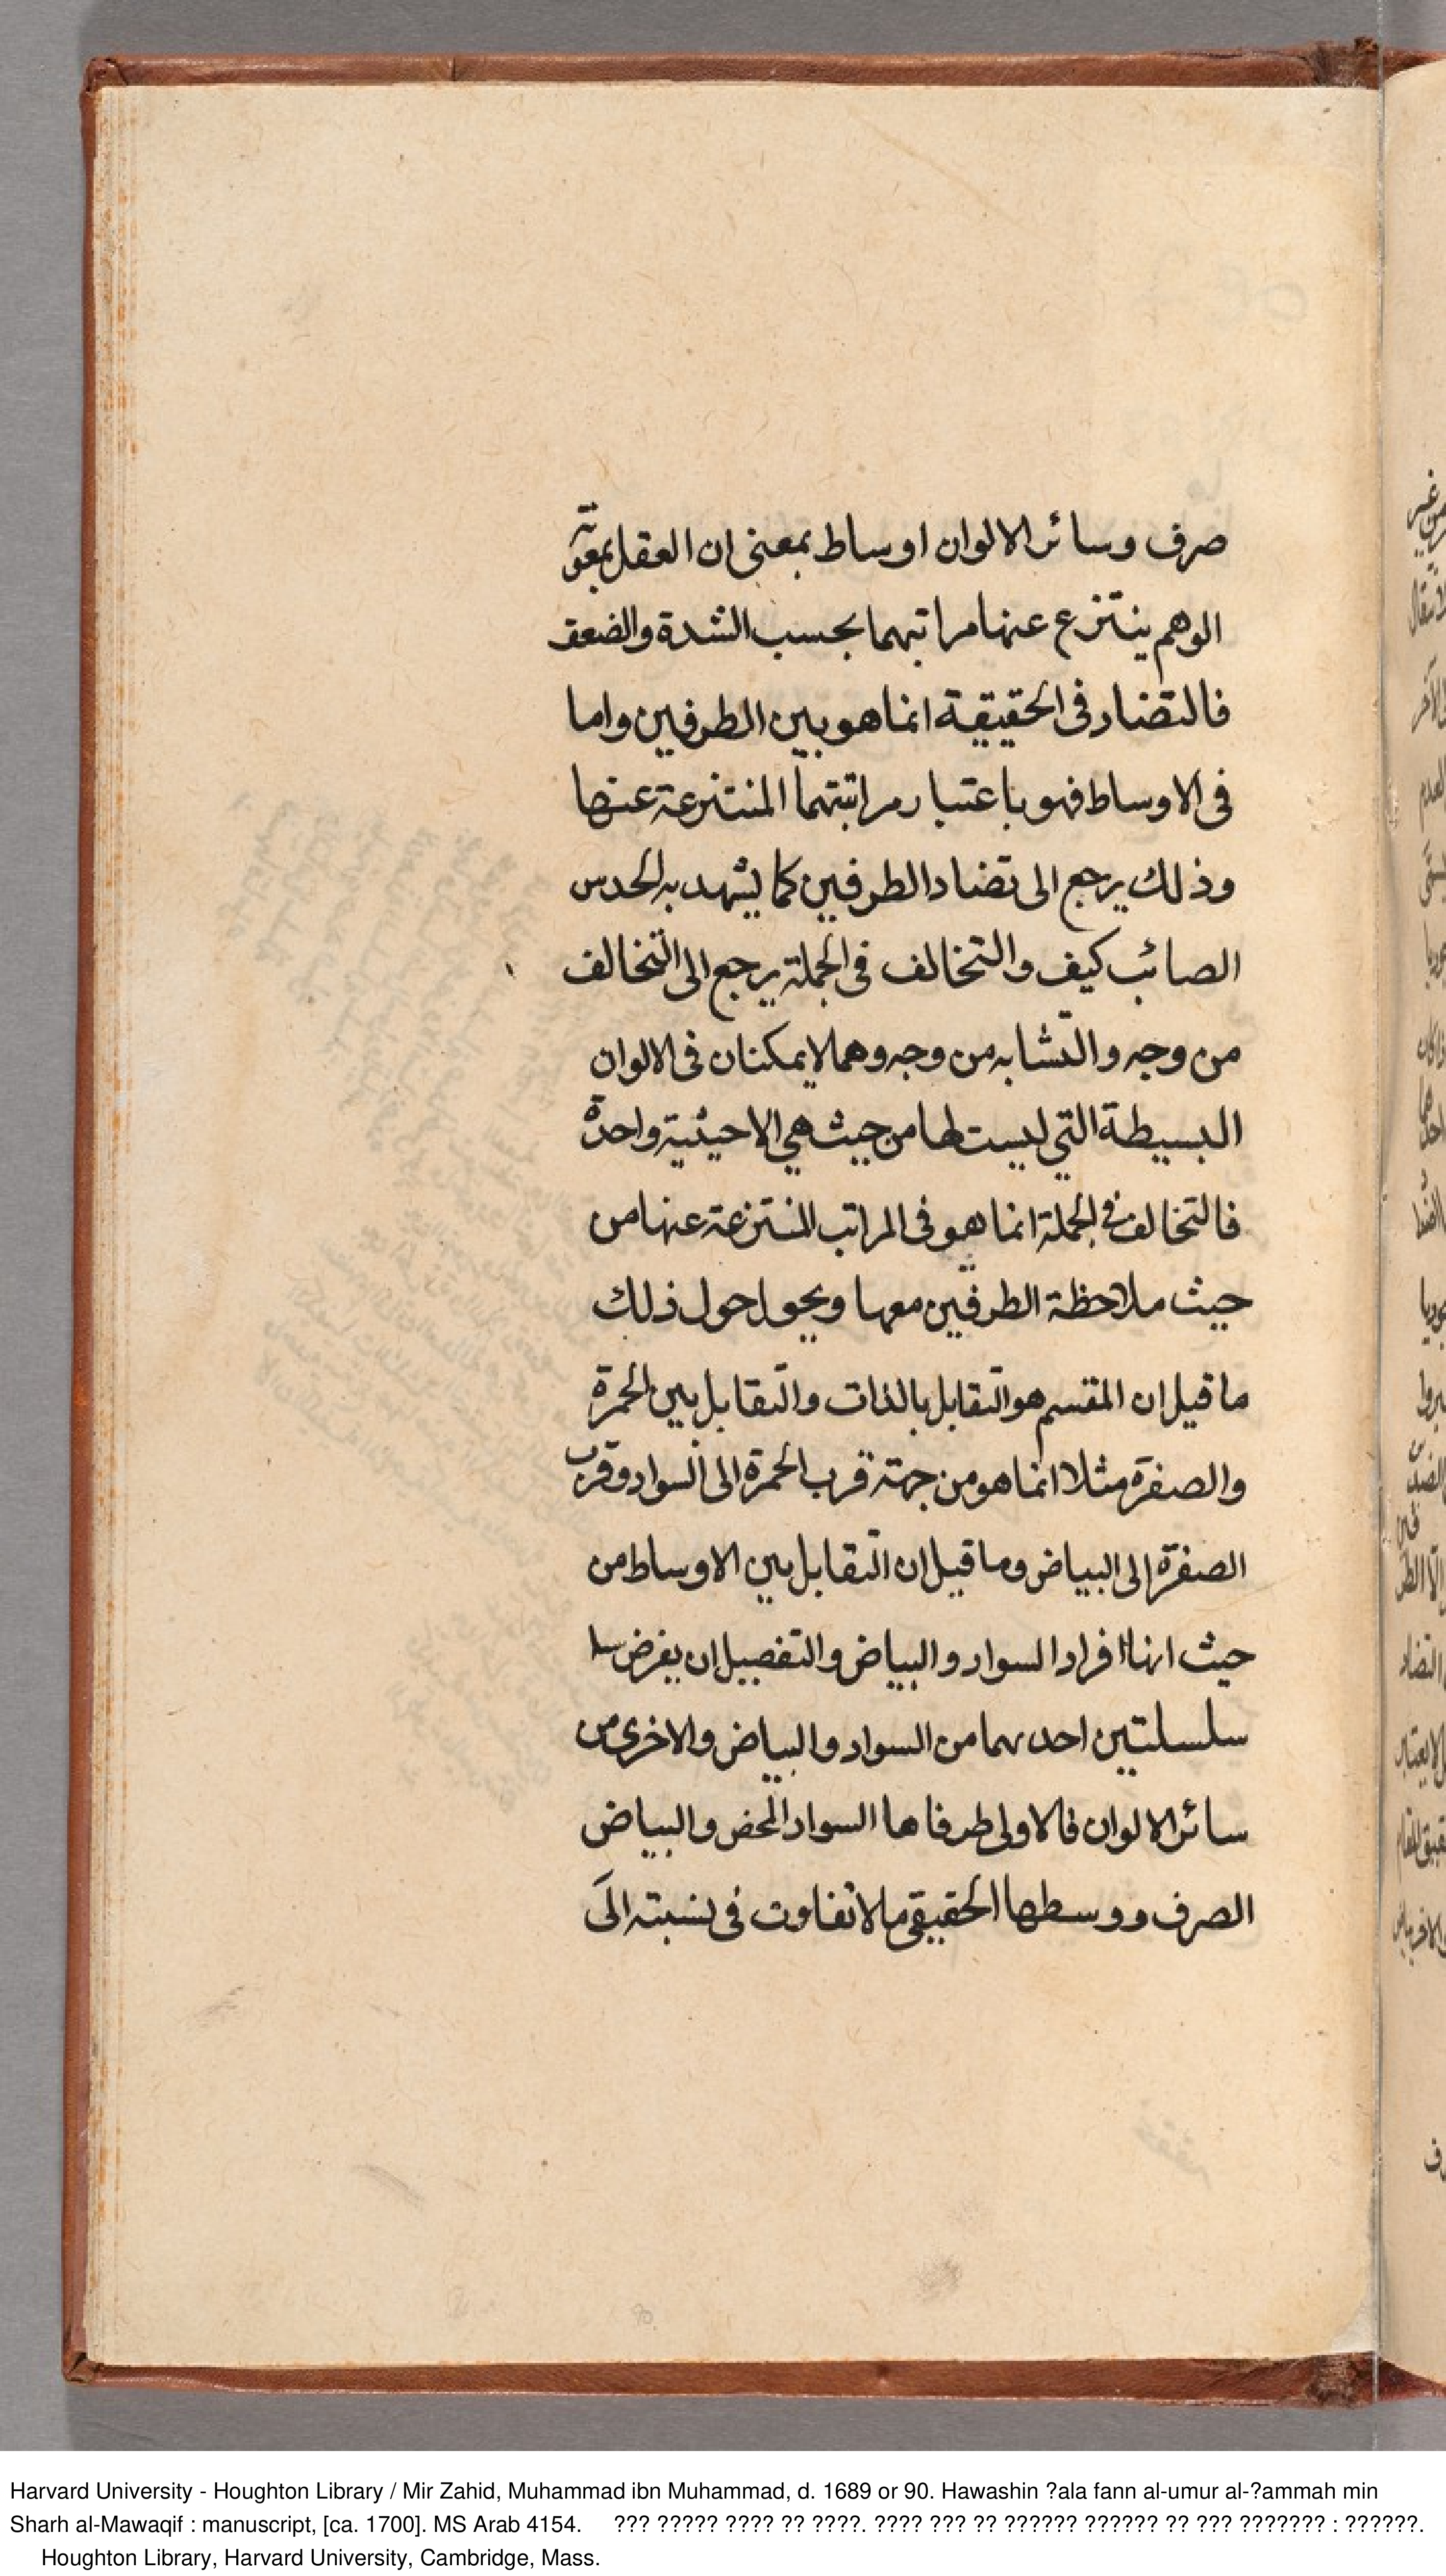 صرف وسائر الالوان اوساط بمعنى ان العقل بمعونة
الوهم ينتزع عنها مراتبهما بحسب الشدة والضعف
فالتضاد فى الحقيقية انما هو بين الطرفين واما
فى الاوساط فهو باعتبار مراتبتهما المنتزعة عنها
وذلك يرجع الى تضاد الطرفين كما يشهد به الحدس
الصائب كيف والتخالف فى الجملة يرجع الى التخالف
من وجه والتشابه من وجه وهما لا يمكنان فى الالوان
البسيطة التي ليست لها من حيث هي الا حيثية واحدة
فالتخالف فى الجملة انما هو فى المراتب المنتزعة عنها من
حيث ملاحظة الطرفين معها ويحوم حول ذلك
ما قيل ان المقسم هو التقابل بالذات والتقابل بين الحمرة
والصفرة مثلا انما هو من جهة قرب الحمرة الى السواد وقرب
الصفرة الى البياض وما قيل ان التقابل بين الاوساط من
حيث انها افراد السواد والبياض والتفصيل ان يفرض سا
سلسلتين احدىهما من السواد والبياض والاخرى من
سائر الالوان فالاولى طرفاها السواد المحض والبياض
الصرف ووسطها الحقيقى ما لا تفاوت فى نسبته الى
Harvard University - Houghton Library / Mir Zahid, Muhammad ibn Muhammad, d. 1689 or 90. Hawashin ?ala fann al-umur al-?ammah min
Sharh al-Mawaqif : manuscript, [ca. 1700]. MS Arab 4154. ??? ????? ???? ?? ????. ???? ??? ?? ?????? ?????? ?? ??? ??????? : ??????.
Houghton Library, Harvard University, Cambridge, Mass.